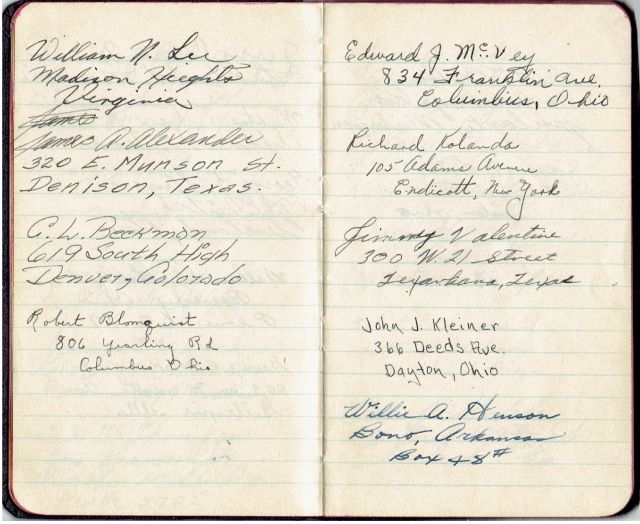 William N. Lee
Madison Heights
Virginia
James
James A. Alexander
320 E. Munson St.
Denison, Texas.
C. L. Beckmon
619 South High
Denver, Colorado
Robert Blomquist
806 Yearling Rd
Columbus Ohio
Edward J. McVey
834 Franklin Ave.
Columbus, Ohio
Richard Kolanda
105 Adams Avenue
Endicott, New York
Jimmy Valentine
300 W. 21 Street
Texarkana, Texas
John J. Kleiner
366 Deeds Ave.
Dayton, Ohio
Willie A. Henson
Bono, Arkansas
Box 48#